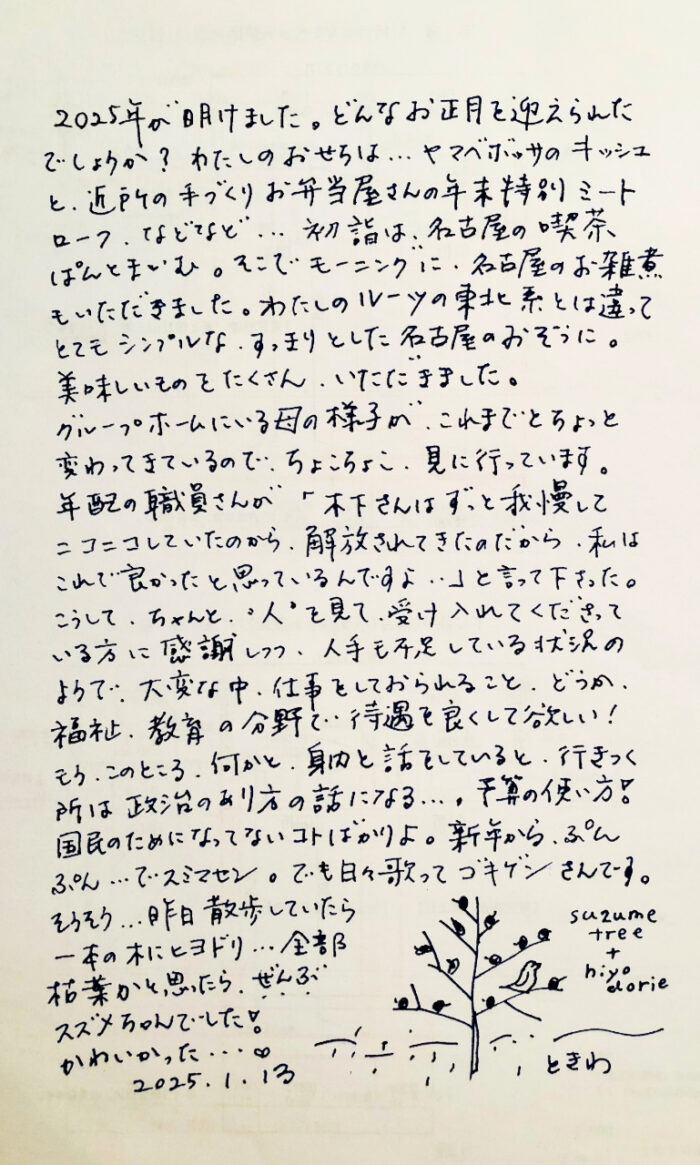 2025年が明けました。どんなお正月を迎えられた
でしょうか？わたしのおせちは…ヤマベボッサのキッシュ
と、近所の手づくりお弁当屋さんの年末特別ミート
ローフ、などなど…初詣は、名古屋の喫茶
ぱんとまいむ。そこでモーニングに、名古屋のお雑煮
もいただきました。わたしのルーツの東北系とは違って
とてもシンプルな、すっきりとした名古屋のおぞうに。
美味しいものをたくさん、いただきました。
グループホームにいる母の様子が、これまでとちょっと
変わってきているので、ちょこちょこ、見に行っています。
年配の職員さんが「木下さんはずっと我慢して
ニコニコしていたのから、解放されてきたのだから、私は
これで良かったと思っているんですよ..」と言って下さった。
こうして、ちゃんと、“人”を見て、受け入れてくださって
いる方に感謝しつつ、人手も不足している状況の
ようで、大変な中、仕事をしておられること、どうか、
福祉、教育の分野で、待遇を良くして欲しい！
もう、このところ、何かと、身内と話をしていると、行きつく
所は政治のあり方の話になる…。予算の使い方！
国民のためになってないコトばかりよ。新年から、ぷん
ぷん…でスミマセン。でも日々歌ってゴキゲンさんです。
そうそう…昨日散歩していたら
一本の木にヒヨドリ…全部
枯葉かと思ったら、ぜんぶ
スズメちゃんでした！
かわいかった…♡
2025.1.13
suzume
tree
+
hiyo
dorie
ときわ